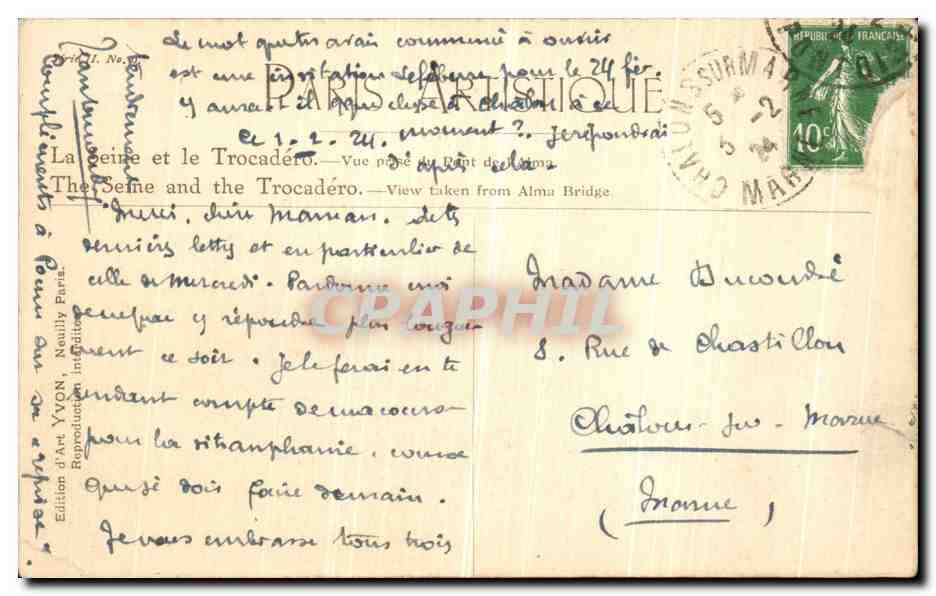 Le mot que tu avais commencé à ouvrir
est une invitation Lefebvre pour le 24 fév.
y aurait-il quelque chose à Châlons à ce
moment ? Je répondrai
d'après cela.
PARIS ARTISTIQUE
Ce 1-2 24.
La Seine et le Trocadéro. — Vue prise du Pont de l'Alma.
The Seine and the Trocadéro. — View taken from Alma Bridge.
Merci, chère Maman, de tes
dernières lettres et en particulier de
celle de Mercredi. Pardonne moi
de ne pas y répondre plus longue-
ment ce soir. Je le ferai en te
rendant compte de ma course
pour la vitrauphanie, course
que je dois faire demain.
Je vous embrasse tous trois
Tendrement
Compliments à sur sa reprise.
Madame Ducondré
8. Rue de Chastillon
Châlons-sur-Marne
(Marne)
Edition d'Art YVON, Neuilly Paris.
Reproduction interdite
REPUBLIQUE FRANÇAISE
10c
CHALONS SUR MARNE
MARNE
5 -2
24
CPAPHIL